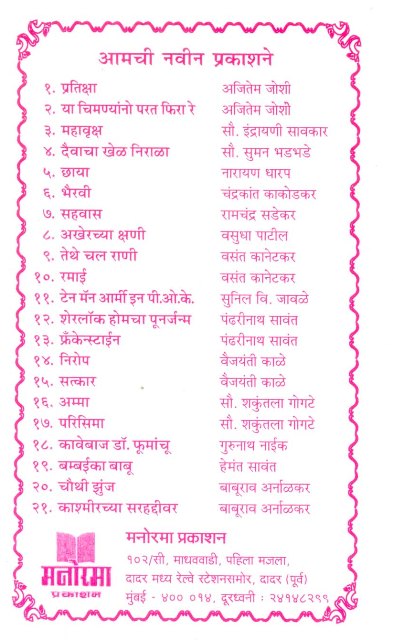 आमची नवीन प्रकाशने
१. प्रतिक्षा अजितेम जोशी
२. या चिमण्यांनो परत फिरा रे अजितेम जोशी
३. महावृक्ष सौ. इंद्रायणी सावकार
४. दैवाचा खेळ निराळा सौ. सुमन भडभडे
५. छाया नारायण धारप
६. भैरवी चंद्रकांत काकोडकर
७. सहवास रामचंद्र सडेकर
८. अखेरच्या क्षणी वसुधा पाटील
९. तेथे चल राणी वसंत कानेटकर
१०. रमाई वसंत कानेटकर
११. टेन मॅन आर्मी इन पी.ओ.के. सुनिल वि. जावळे
१२. शेरलॉक होमचा पूनर्जन्म पंढरीनाथ सावंत
१३. फ्रँकेन्स्टाईन पंढरीनाथ सावंत
१४. निरोप वैजयंती काळे
१५. सत्कार वैजयंती काळे
१६. अम्मा सौ. शकुंतला गोगटे
१७. परिसिमा सौ. शकुंतला गोगटे
१८. कावेबाज डॉ. फूमांचू गुरुनाथ नाईक
१९. बम्बईका बाबू हेमंत सावंत
२०. चौथी झुंज बाबूराव अर्नाळकर
२१. काश्मीरच्या सरहद्दीवर बाबूराव अर्नाळकर
मनोरमा प्रकाशन
मनोरमा
प्रकाशन
१०२/सी, माधववाडी, पहिला मजला,
दादर मध्य रेल्वे स्टेशनसमोर, दादर (पूर्व)
मुंबई - ४०० ०१४, दूरध्वनी : २४१४८२९९